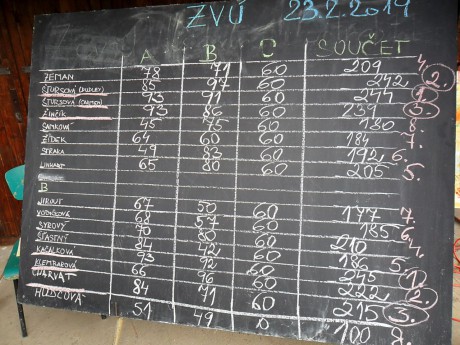 ZVÚ 23.2.2019
A B C SOUČET
ZEMAN 78 71 60 209 4.
ŠTURSOVÁ 85 97 60 242 2.
ŠTURSOVÁ 93 91 60 244 1.
ZIMČÍK 93 86 60 239 3.
SANKOVÁ 45 75 60 180 8.
ŽÍDEK 64 60 60 184 7.
STRAKA 49 83 60 192 6.
LINHART 65 80 60 205 5.
B
JIROUT 67 50 60 177 7.
VODIČKOVÁ 68 57 60 185 6.
SYROVÝ 70 80 60 210 4.
ŠŤASTNÝ 84 42 60 186 5.
KAČALKOVÁ 93 92 60 245 1.
KLEMPAROVÁ 66 96 60 222 2.
CHARVÁT 84 71 60 215 3.
HLOUŠCOVÁ 51 49 0 100 8.